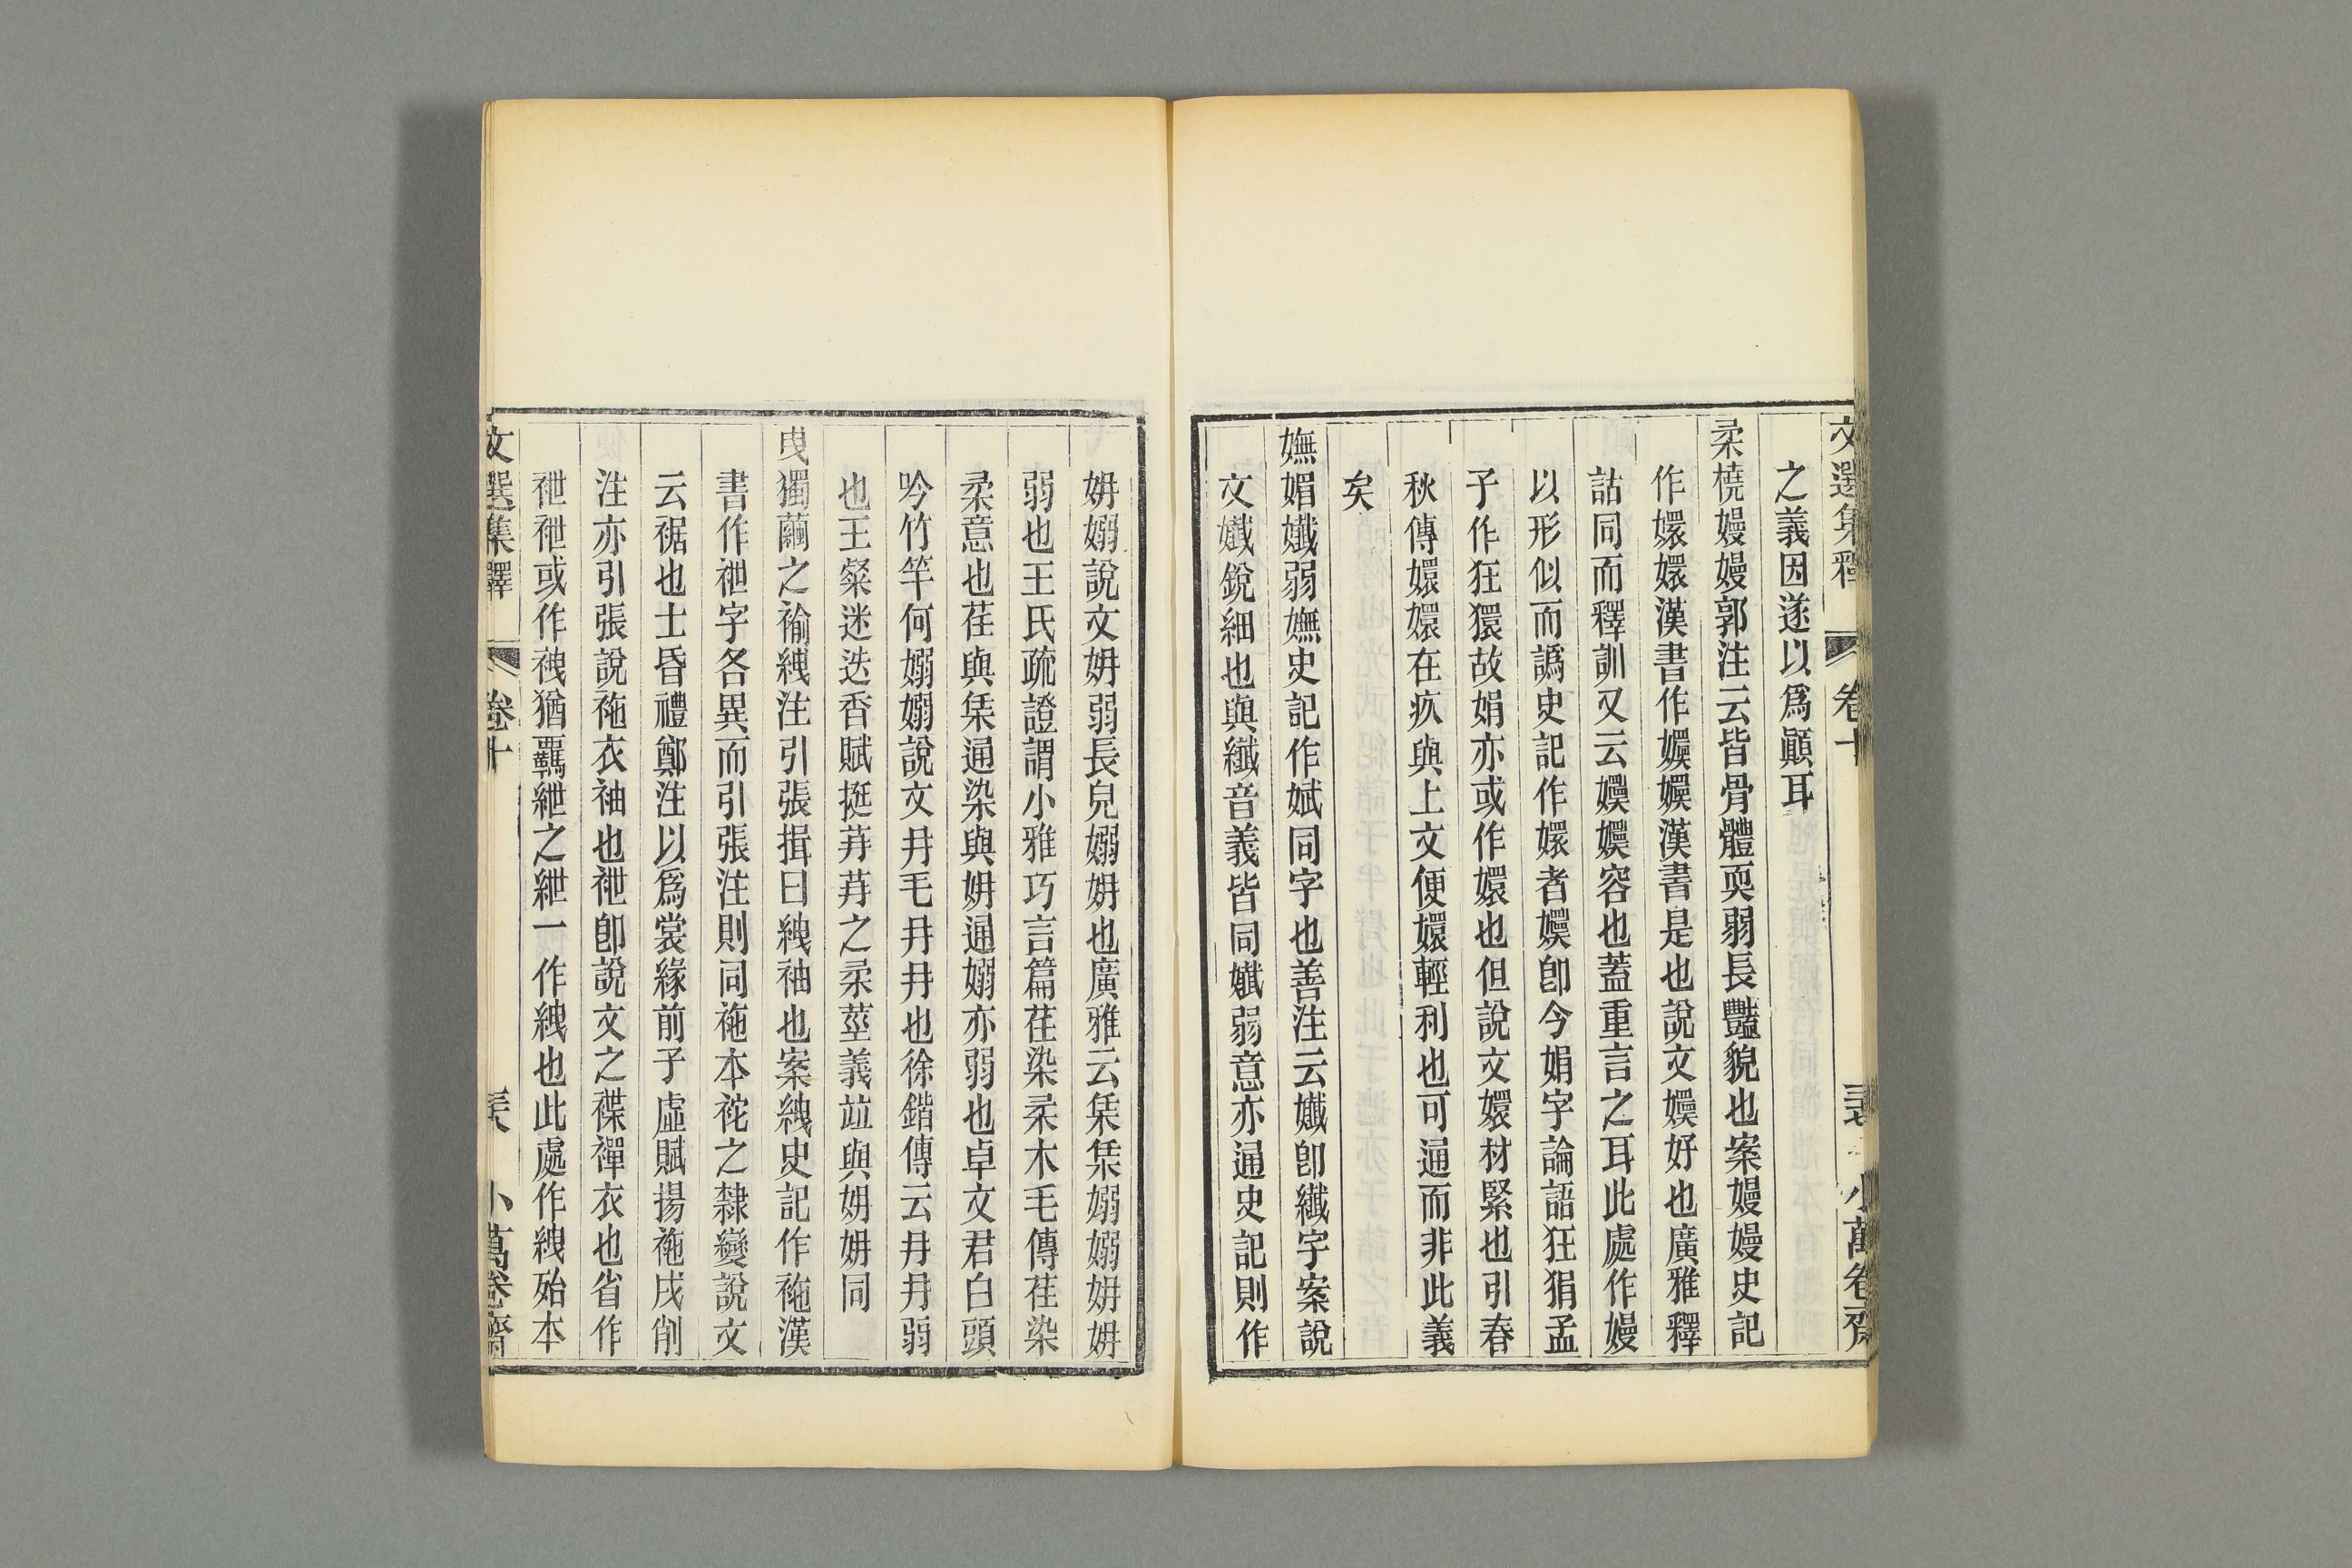 文選集釋 卷十 小萬卷齋
之義因遂以爲顚耳
柔橈嫚嫚郭注云皆骨體耎弱長豔貌也案嫚嫚史記
作嬛嬛漢書作嬽嬽漢書是也說文嬽好也廣雅釋
詁同而釋訓又云嬽嬽容也蓋重言之耳此處作嫚
以形似而譌史記作嬛者嬽卽今娟字論語狂狷孟
子作狂獧故娟亦或作嬛也但說文嬛材緊也引春
秋傳嬛嬛在疚與上文便嬛輕利也可通而非此義
矣
嫵媚孅弱嫵史記作娬同字也善注云孅卽纖字案說
文孅銳細也與纖音義皆同孅弱意亦通史記則作
姌嫋說文姌弱長皃嫋姌也廣雅云㭝㭝嫋嫋姌姌
弱也王氏疏證謂小雅巧言篇荏染柔木毛傳荏染
柔意也荏與㭝通染與姌通嫋亦弱也卓文君白頭
吟竹竿何嫋嫋說文冄毛冄冄也徐鍇傳云冄冄弱
也王粲迷迭香賦挺苒苒之柔莖義竝與姌姌同
曳獨繭之褕絏注引張揖曰絏袖也案絏史記作袘漢
書作袣字各異而引張注則同袘本袉之隸變說文
云裾也士昏禮鄭注以爲裳緣前子虛賦揚袘戌削
注亦引張說袘衣袖也袣卽說文之褋襌衣也省作
袣袣或作襪猶羈紲之紲一作絏也此處作絏殆本
文選集釋 卷十 小萬卷齋